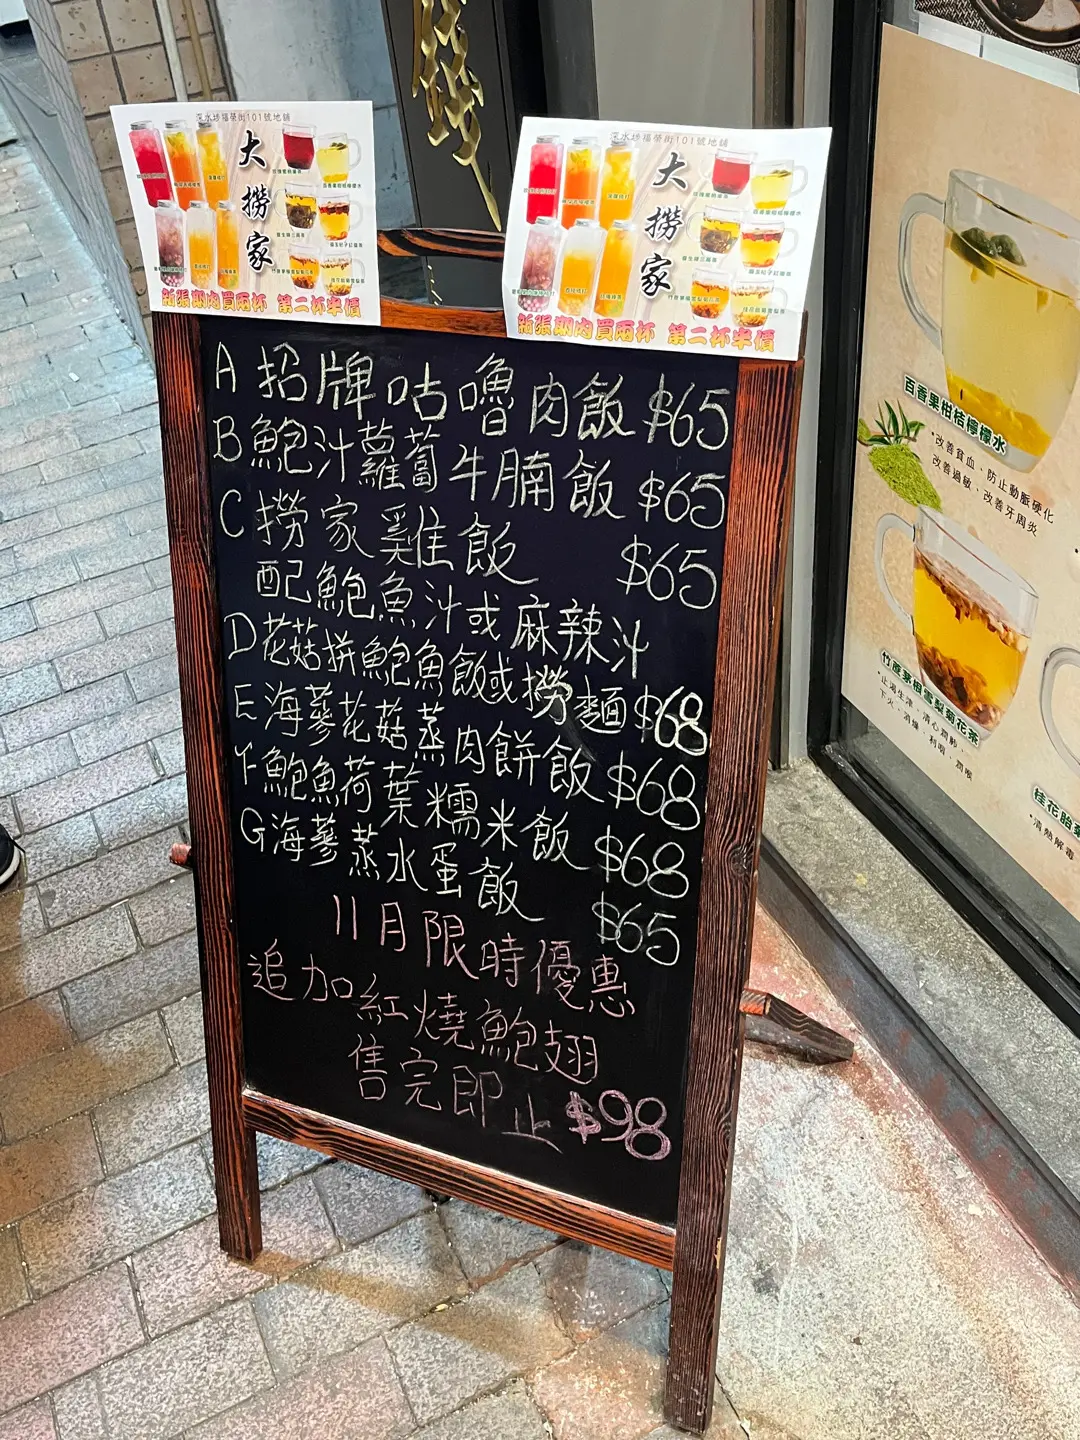 深水埗福榮街101號地舖
大撈家
新張期內買兩杯 第二杯半價
深水埗福榮街101號地舖
大撈家
新張期內買兩杯 第二杯半價
A 招牌咕嚕肉飯 $65
B 鮑汁蘿蔔牛腩飯 $65
C 撈家雞飯 $65
配鮑魚汁或麻辣汁
D 花菇拼鮑魚飯或撈麵 $68
E 海蔘花菇蒸肉餅飯 $68
F 鮑魚荷葉糯米飯 $68
G 海蔘蒸水蛋飯 $65
11月限時優惠
追加紅燒鮑翅
售完即止 $98
百香果柑桔檸檬水
*改善貧血、防止動脈硬化
改善過敏、改善牙周炎
竹蔗茅根雪梨菊花茶
*止渴生津、清心潤肺、
下火、消燥、利咽、潤喉
桂花胎菊
*清熱解毒